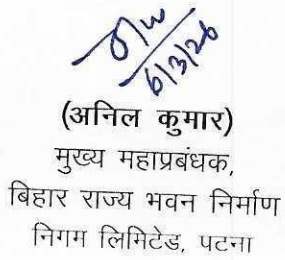 6/3/26
(अनिल कुमार)
मुख्य महाप्रबंधक,
बिहार राज्य भवन निर्माण
निगम लिमिटेड, पटना